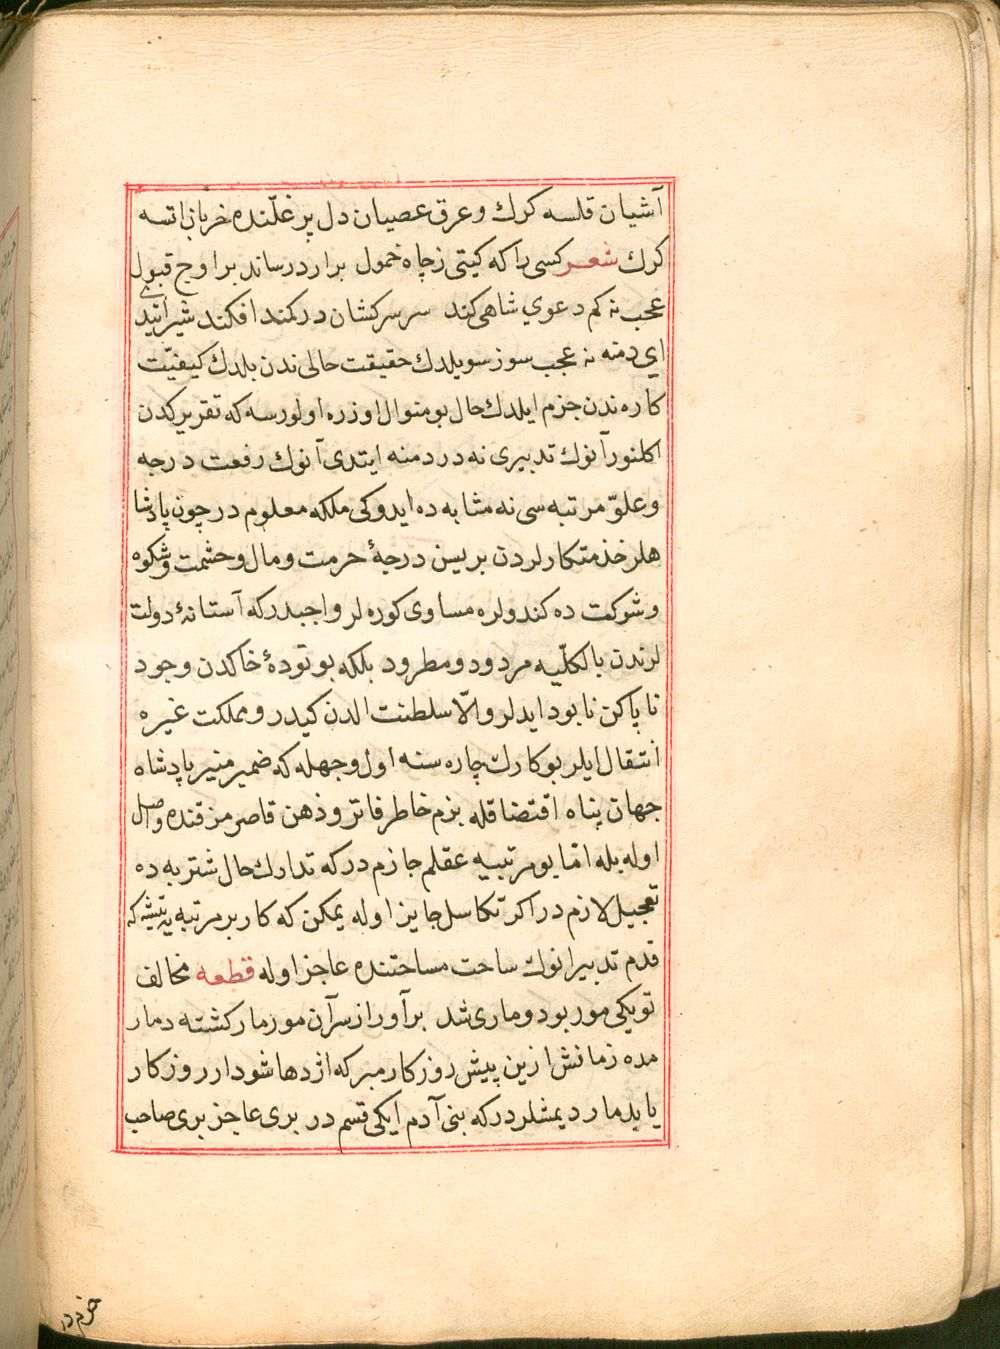 آشیان قلسه كرك و عرق عصیان دل پر غلّنده خربان اتسه
كرك شعر كسی را كه كیتی ز چاه خمول برارد رساند بر اوج قبول
عجب نه كم دعوي شاهی كند سر سركشان در كمند افكند شیر ایتدی
ای دمنه نه عجب سوز سویلدك حقیقت حالی ندن بلدك كیفیّت
كاره ندن جزم ایلدك حال بو منوال اوزره اولورسه كه تقریركدن
اكلنور آنوك تدبیری نه در دمنه ایتدی آنوك رفعت درجه
و علوّ مرتبه سی نه مثابه ده ایدوكی ملكه معلوم در چون پادشا
هلر خذمتكارلردن بریسن درجهٔ حرمت و مال و حشمت و شكوه
و شوكت ده كندولره مساوی كوره لر واجبدر كه آستانهٔ دولت
لرندن بالكلّیه مردود و مطرود بلكه بو تودهٔ خاكدن وجود
ناپاكن نابود ایدلر والّا سلطنت الدن كیدر و مملكت غیره
انتقال ایلر بو كارك چاره سنه اول وجهله كه ضمیر منیر پادشاه
جهان پناه اقتضا قله بزم خاطر فاتر و ذهن قاصرمز قنده واصل
اوله بله امّا بو مرتبیه عقلم جازم در كه تدارك حال شتربه ده
تعجیل لازم در اكر تكاسل جایز اوله یمكن كه كار بر مرتبه یه یتیشه كه
قدم تدبیر انوك ساحت مساحتنده عاجز اوله قطعه مخالف
تو یكی مور بود و ماری شد برآور از سر آن مور مار كشته دمار
مده زمانش ازین پیش روزكار مبر كه اژدها شود ار روزكار
یابد مار دیمشلردر كه بنی آدم ایكی قسم در بری عاجز بری صاحب
خرم در